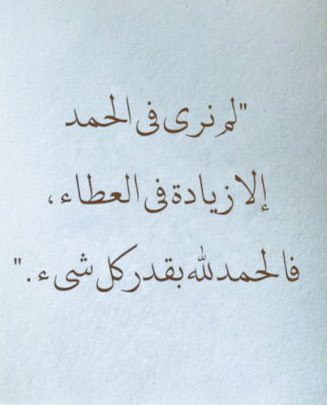 "لم نرى في الحمد
إلا زيادة في العطاء،
فالحمدلله بقدر كل شيء."